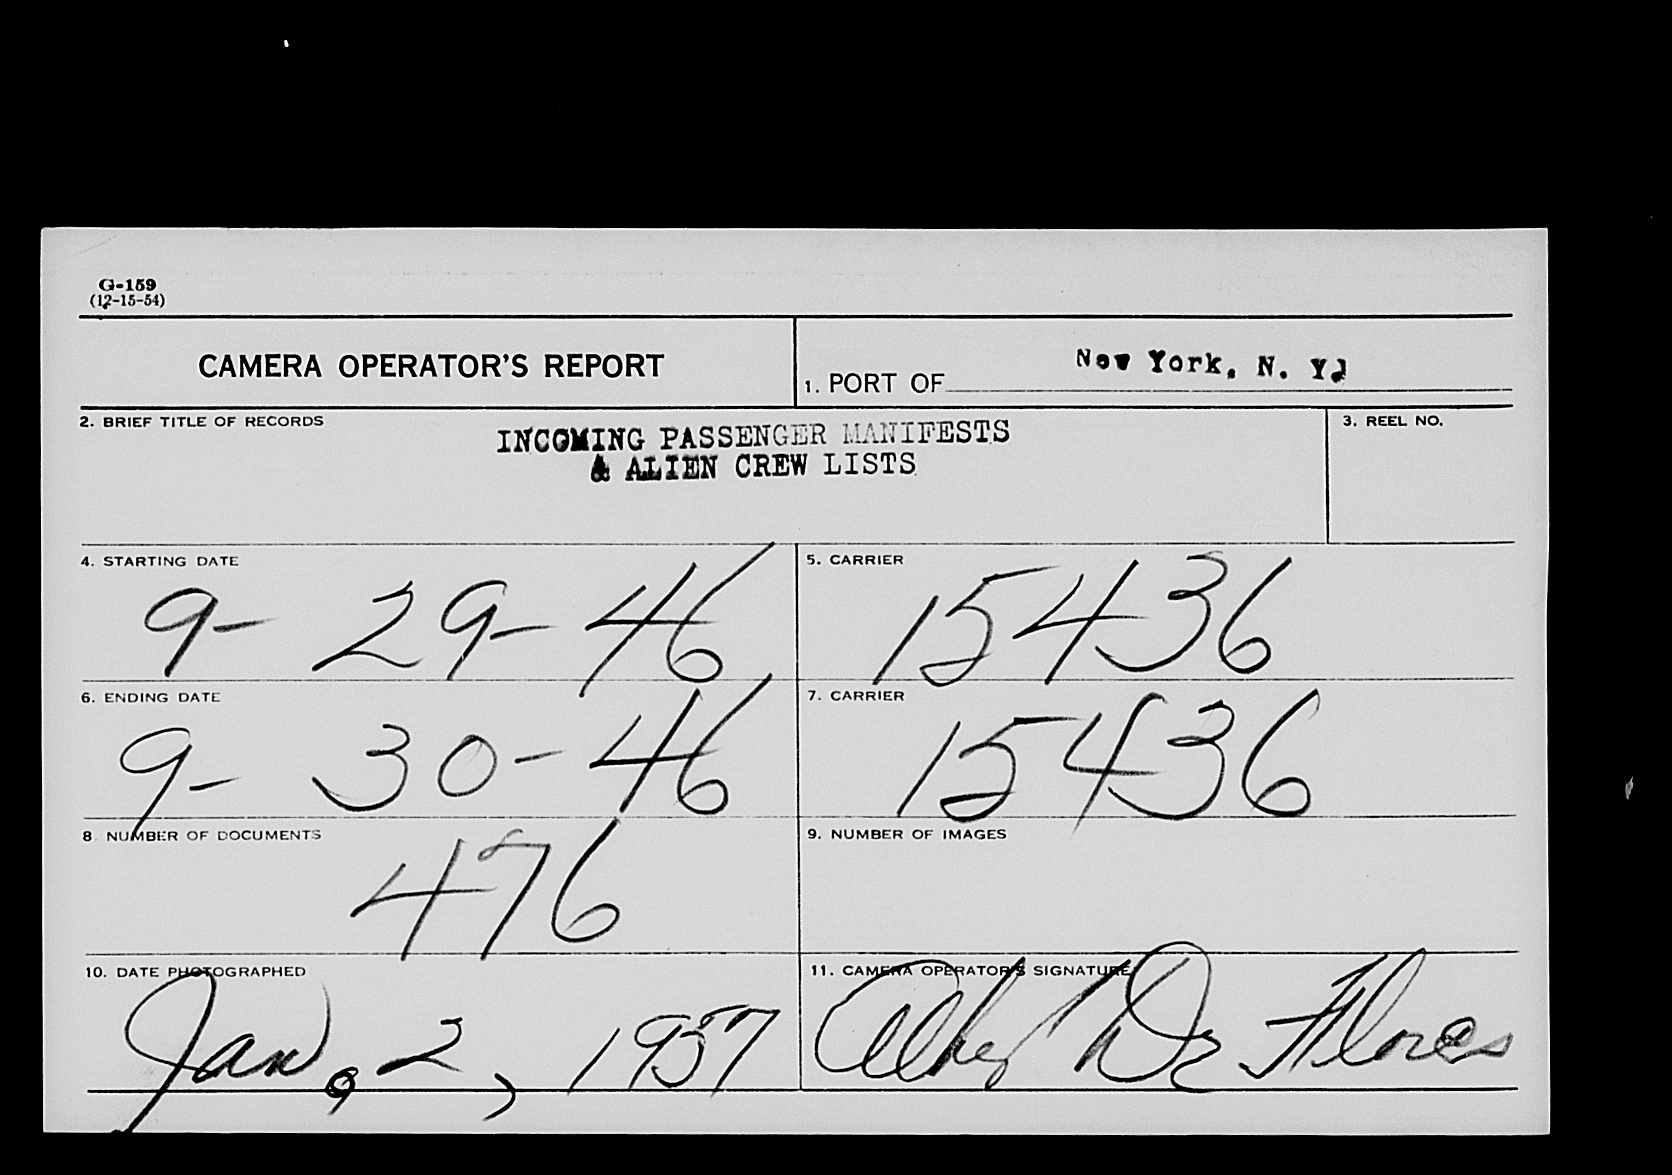 G-159
(12-15-54)
CAMERA OPERATOR'S REPORT
1. PORT OF New York, N. Y.
2. BRIEF TITLE OF RECORDS
INCOMING PASSENGER MANIFESTS
& ALIEN CREW LISTS
3. REEL NO.
4. STARTING DATE
9-29-46
5. CARRIER
15436
6. ENDING DATE
9-30-46
7. CARRIER
15436
8 NUMBER OF DOCUMENTS
476
9. NUMBER OF IMAGES
10. DATE PHOTOGRAPHED
Jan. 2, 1957
11. CAMERA OPERATOR'S SIGNATURE
Flores